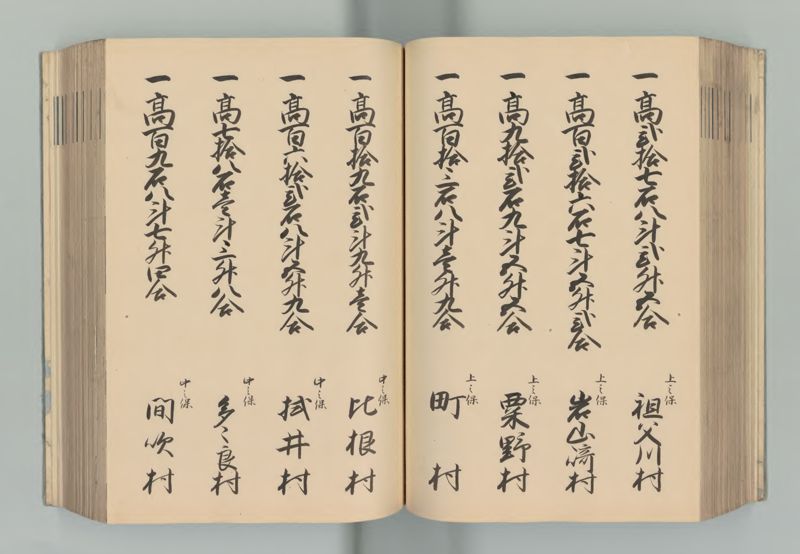 一高弐拾七石八斗弐升五合
上之保
祖父川村
一高百弐拾六石七斗五升弐合
上之保
岩山崎村
一高九拾弐石九斗五升五合
上之保
粟野村
一高百拾三石八斗壱升九合
上之保
町村
一高百拾九石弐斗九升壱合
中之保
比根村
一高百六拾弐石八斗五升九合
中之保
拭井村
一高七拾八石壱斗三升八合
中之保
多々良村
一高百九石八斗七升四合
中之保
間吹村